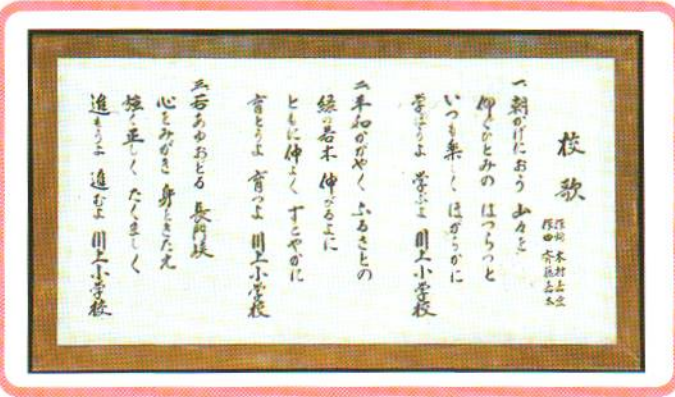 校歌
作詞 木村
作曲
一、朝かげにおう 山々を
仰ぐひとみの はつらつと
いつも楽しく ほがらかに
学ぼうよ 学ぶよ 川上小学校
二、平和かがやく ふるさとの
緑の若木 伸びるよに
ともに仲よく すこやかに
育とうよ 育つよ 川上小学校
三、若あゆおどる 長門峡
心をみがき 身をきたえ
強く正しく たくましく
進もうよ 進むよ 川上小学校